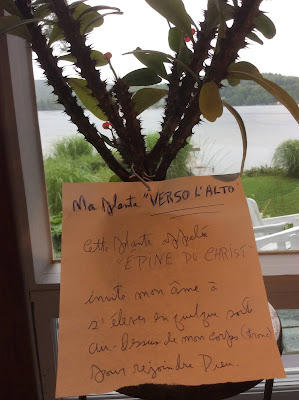 Ma plante "VERSO L'ALTO
Cette plante appelée
"EPINE DU CHRIST"
invite mon âme à
s'élever en quelque sorte
au-dessus de mon corps (tronc)
pour rejoindre Dieu.